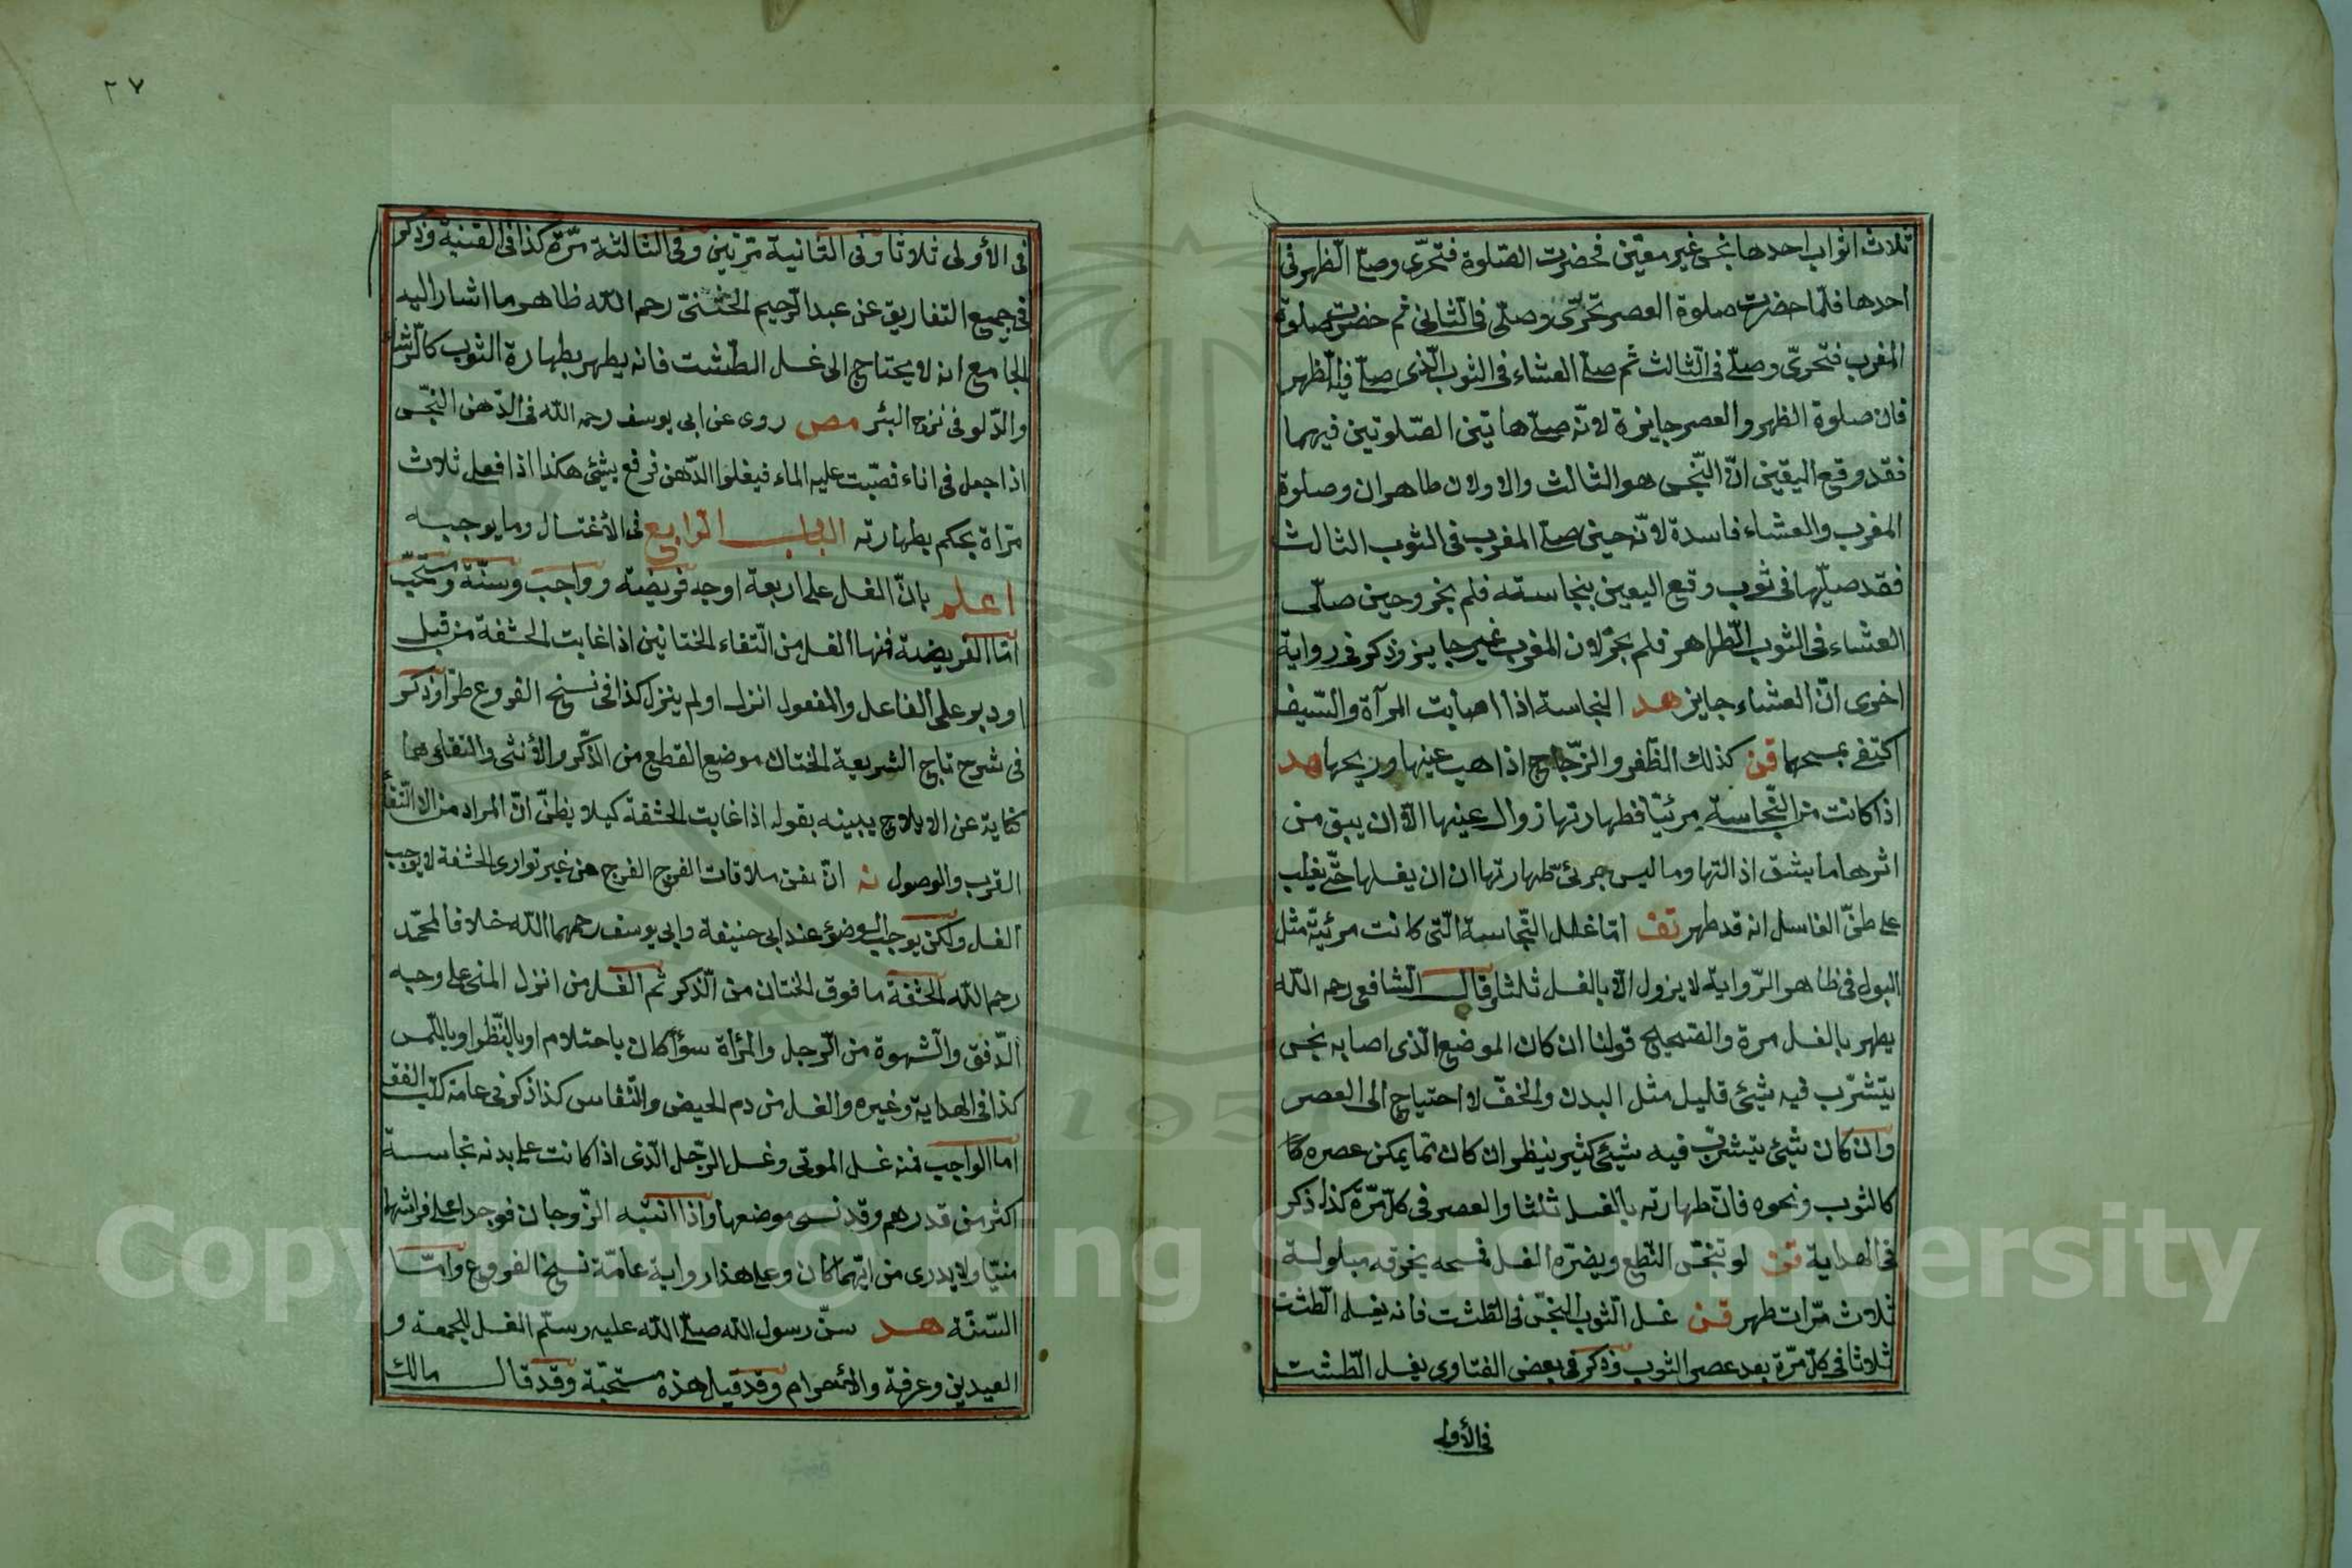 ثلاث اثواب احدها نجس غير معيّن فحضرت الصّلوة فتحرّى وصلّى الظهر فى
احدها فلمّا حضرت صلوة العصر تحرّى وصلّى فى الثانى ثم حضرت صلوة
المغرب فتحرّى وصلّى فى الثالث ثم صلّى العشاء فى الثوب الّذى صلّى فيه الظهر
فان صلوة الظهر والعصر جايزة لانّه صلّى هاتين الصّلوتين فيهما
فقد وقع اليقين انّ النّجس هو الثالث والاولان طاهران وصلوة
المغرب والعشاء فاسدة لانّه حين صلّى المغرب فى الثوب الثالث
فقد صلّيها فى ثوب وقع اليقين بنجاسته فلم يجز وحين صلّى
العشاء فى الثوب الطّاهر فلم يجز لان المغرب غير جايز وذكر فى رواية
اخرى انّ العشاء جايز هد النجاسة اذا اصابت المرآة والسّيف
اكتفى بمسحهما قن كذلك الظّفر والزّجاج اذا هب عينها وريحها هد
اذا كانت من النّجاسة مرئيّا فطهارتها زوال عينها الّا ان يبقى من
اثرها ما يشقّ اذالتها وما ليس بمرئىّ طهارتها ان يغسلها حتّى يغلب
على ظنّ الغاسل انه قد طهر تف امّا غسل النّجاسة الّتى كانت مرئيّة مثل
البول فى ظاهر الرّواية لا يزول الّا بالغسل ثلثا وقال الشافعى رحمه الله
يطهر بالغسل مرة والصّحيح قولنا ان كان الموضع الّذى اصابه نجس
يتشرّب فيه شيئ قليل مثل البدن والخفّ لا احتياج الى العصر
وان كان شيئ يتشرّب فيه شيئ كثير ينظر ان كان ممّا يمكن عصره
كالثوب ونحوه فانّ طهارته بالغسل ثلثا والعصر فى كلّ مرّة كذا ذكر
فى الهداية قن لو تنجّس النّطع ويضرّه الغسل فمسحه بخرقة مبلولة
ثلاث مرّات طهر قن غسل الثوب النجّس فى الطّشت فانه يغسل الطّشت
ثلاثا فى كلّ مرّة بعد عصر الثوب وذكر فى بعض الفتاوى يغسل الطّشت
فى الأولى
٢٧
فى الأولى ثلاثا وفى الثانية مرّتين وفى الثالثة مرّة كذا فى القنية وذكر
فى جميع التفاريق عن عبد الرّحيم الختنىّ رحمه الله ظاهر ما اشار اليه
الجامع انه لا يحتاج الى غسل الطّشت فانه يطهر بطهارة الثوب كالرّشاء
والدّلو فى نزح البئر مص روى عن ابى يوسف رحمه الله فى الدّهن النجّس
اذا جعل فى اناء فصبّت عليه الماء فيغلوا الدّهن فرفع بشيئ هكذا اذا فعل ثلاث
مرّاة يحكم بطهارته الباب الرابع فى الأغتسال وما يوجبه
اعلم بانّ الغسل على اربعة اوجه فريضة وواجب وسنّة ومستحبّ
امّا الفريضة فمنها الغسل من التقاء الختانين اذا غابت الحشفة من قبل
او دبر على الفاعل والمفعول انزل او لم ينزل كذا فى نسخ الفروع طرّا وذكر
فى شرح تاج الشريعة الختان موضع القطع من الذّكر والأنثى والتقاءهما
كناية عن الايلاج يبيّنه بقوله اذا غابت الحشفة كيلا يظنّ انّ المراد من الالتقاء
القرب والوصول نه انّ نفس ملاقات الفرج الفرج من غير توارى الحشفة لا يوجب
الغسل ولكن يوجب الوضوء عند ابى حنيفة وابى يوسف رحمهما الله خلافا لمحمّد
رحمه الله الحشفة ما فوق الختان من الذّكر ثم الغسل من انزل المنى على وجه
الدّفق والشّهوة من الرّجل والمرأة سوأ كان باحتلام او بالنّظر او باللّمس
كذا فى الهداية وغيره والغسل من دم الحيض والنّفاس كذا ذكر فى عامّة كتب الفقه
امّا الواجب فمنه غسل الموتى وغسل الرّجل الّذى اذا كانت على بدنه نجاسة
اكثر من قدر درهم وقد نسى موضعها واذا انتبه الزّوجان فوجدا على فراشهما
منيّا ولا يدرى من ايّهما كان وعلى هذا رواية عامّة نسخ الفروع وامّا
السّنّة هد سنّ رسول الله صلّى الله عليه وسلّم الغسل للجمعة و
العيدين وعرفة والأحرام وقد قيل هذه مستحبّة وقد قال مالك
Copyright © King Saud University
1957